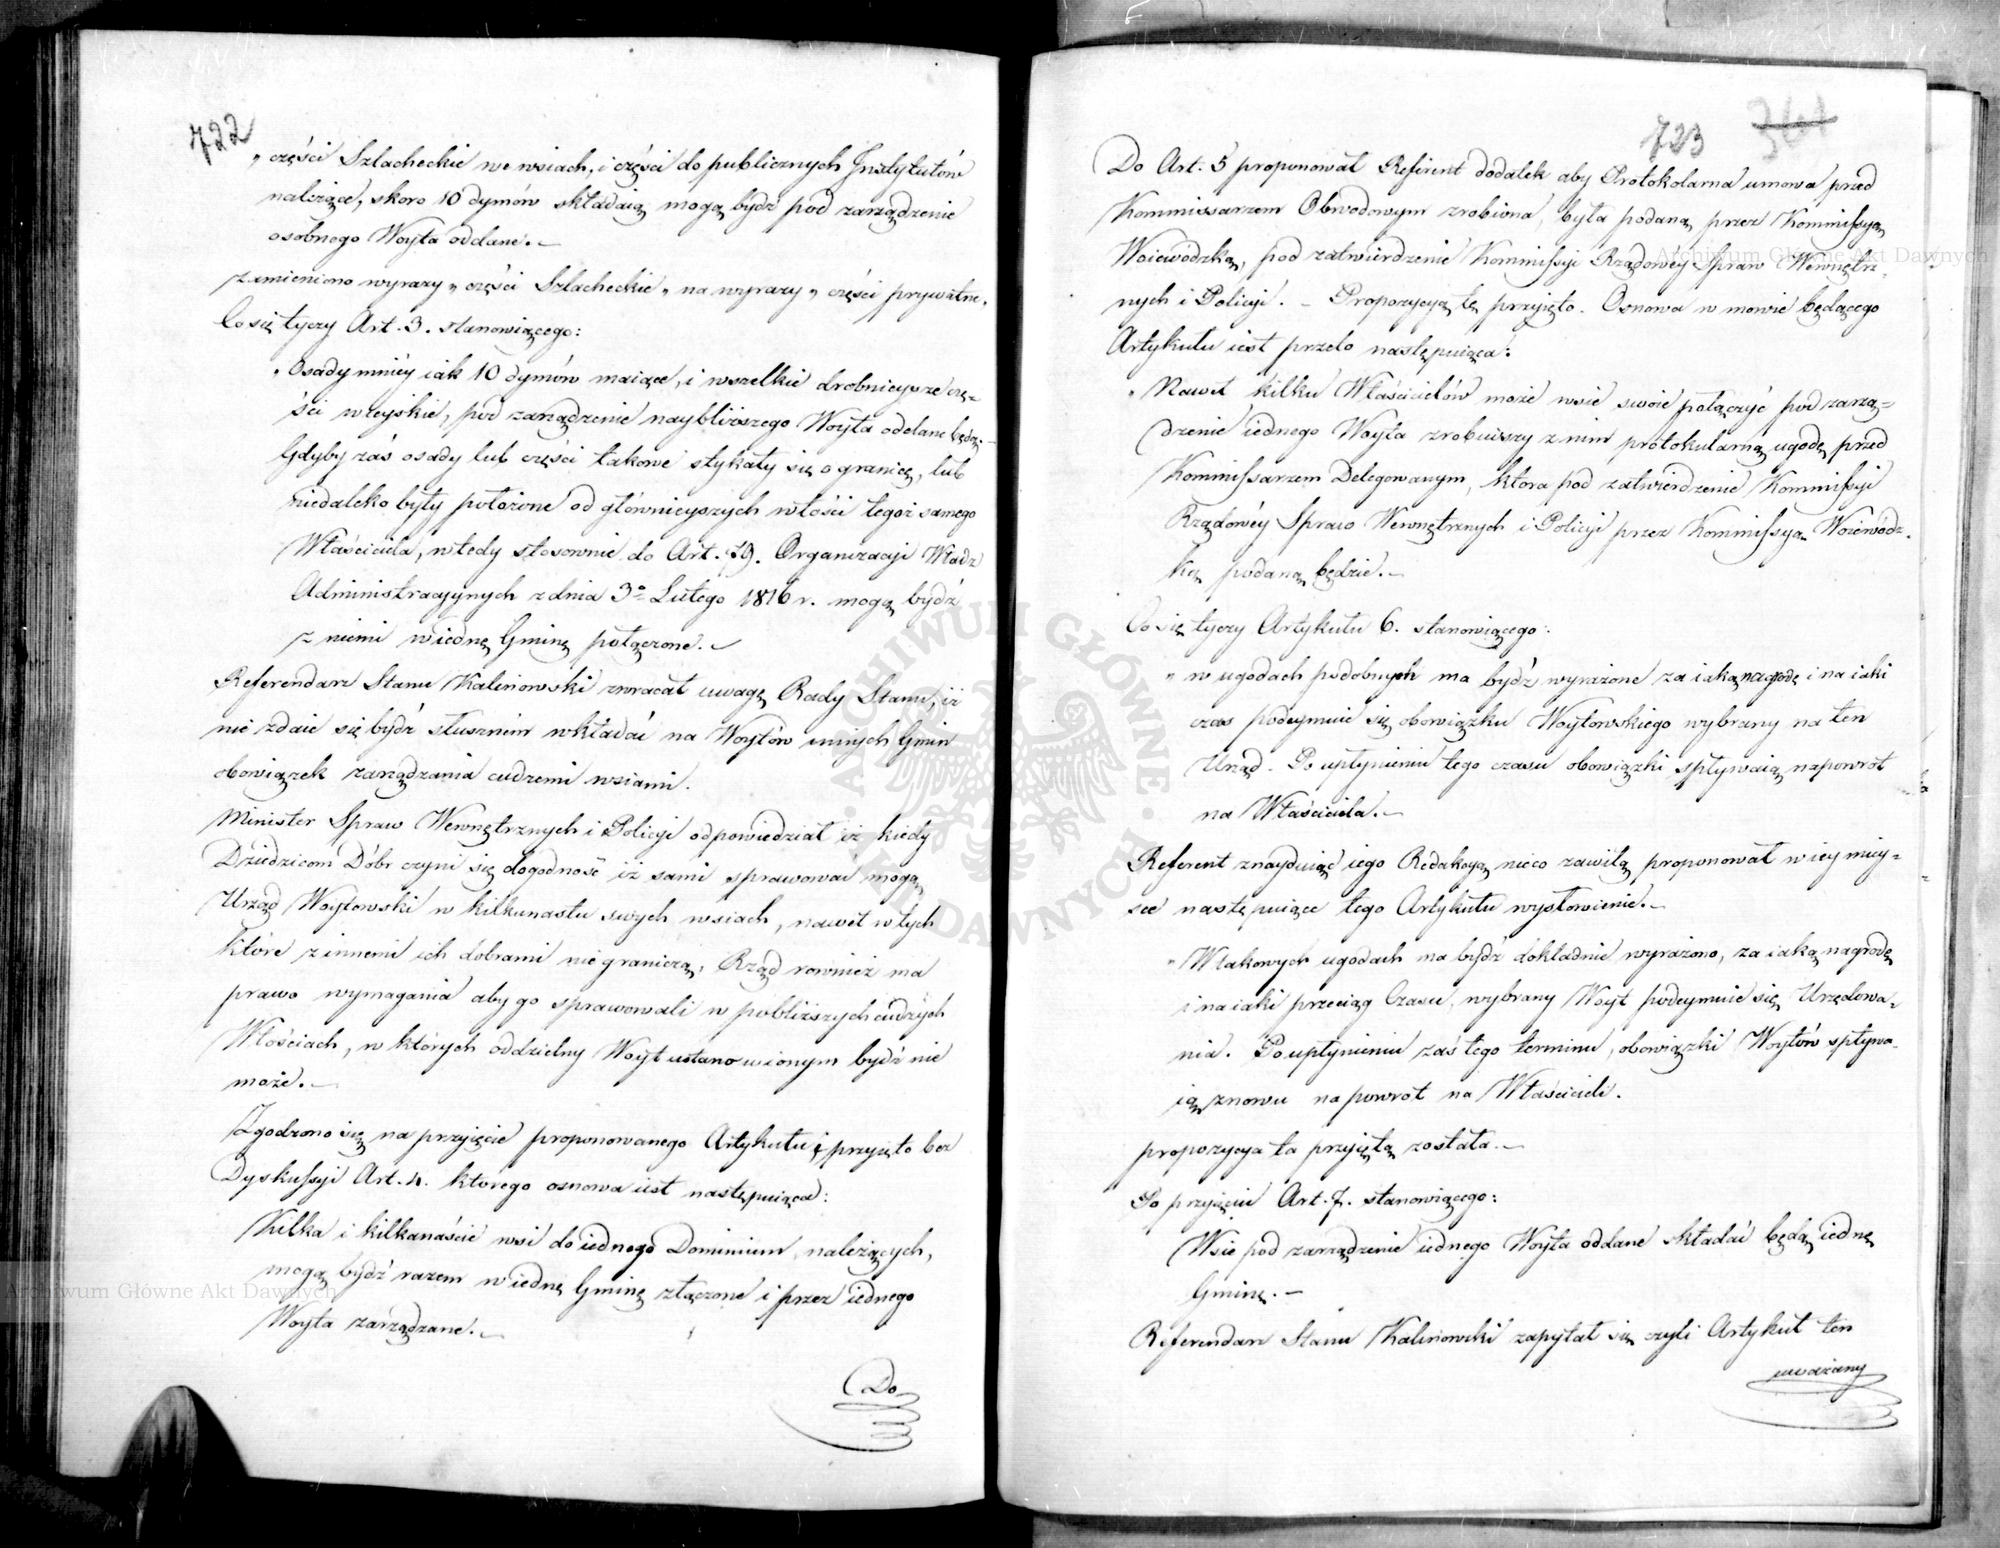 722
„części Szlacheckie we wsiach, i części do publicznych Jnstytutów
należące, skoro 10 dymów składaią mogą bydź pod zarządzenie
osobnego Woyta oddane. –
zamieniono wyrazy „części Szlacheckie„ na wyrazy „części prywatne.
Co się tyczy Art. 3. stanowiącego:
„Osady mniéy iak 10 dymów maiące, i wszelkie drobnieysze czę-
ści wieyskie, pod zarządzenie naybliższego Woyta oddane będą. –
Gdyby zaś osady lub części takowe stykały się o granicę, lub
niedaleko były położone od głównieyszych włości tegoż samego
Właściciela, wtedy stosownie do Art. 19. Organizacyi Władz
Administracyynych z dnia 3º Lutego 1816 r. mogą bydź
z niemi w iednę Gminę połączone. –
Referendarz Stanu Kalinowski zwracał uwagę Rady Stanu, iż
nie zdaie się bydź słusznem wkładać na Woytów innych Gmin
obowiązek zarządzania cudzemi wsiami.
Minister Spraw Wewnętrznych i Policyi odpowiedział iż kiedy
Dziedzicom Dóbr czyni się dogodność iż sami sprawować mogą
Urząd Woytowski w kilkunastu swych wsiach, nawet w tych
które z innemi ich dobrami nie graniczą, Rząd również ma
prawo wymagania aby go sprawowali w pobliższych cudzych
Włościach, w których oddzielny Woyt ustanowionym bydź nie
może. –
Zgodzono się na przyięcie proponowanego Artykułu i przyięto bez
Dyskussyi Art. 4. którego osnowa iest następuiąca:
Kilka i kilkanaście wsi do iednego Dominium należących,
mogą bydź razem w iednę Gminę złączone i przez iednego
Woyta zarządzane. –
Do
723
361
Do Art. 5 proponował Referent dodatek aby Protokolarna umowa przed
Kommissarzem Obwodowym zrobiona, była podaną przez Kommissyą
Woiewódzką, pod zatwierdzenie Kommissyi Rządowéy Spraw Wewnętrz-
nych i Policyi. – Propozycyą tę przyięto. Osnowa w mowie będącego
Artykułu iest przeto następuiąca:
„Nawet kilku Właścicielów może wsie swoie połączyć pod zarzą-
dzenie iednego Woyta zrobiwszy z nim protokularną ugodę przed
Kommissarzem Delegowanym, która pod zatwierdzenie Kommissyi
Rządowéy Spraw Wewnętrznych i Policyi przez Kommissyą Woiewódz-
ką podaną będzie. –
Co się tyczy Artykułu 6. stanowiącego:
„w ugodach podobnych ma bydź wyrażone za iaką nagrodę i na iaki
czas podeymuie się obowiązku Woytowskiego wybrany na ten
Urząd. Po upłynieniu tego czasu obowiązki spływaią napowrót
na Właściciela. –
Referent znayduiąc iego Redakcyą nieco zawiłą proponował w iey miey-
sce następuiące tego Artykułu wysłowienie. –
„W takowych ugodach ma bydź dokładnie wyrażono, za iaką nagrodę
i na iaki przeciąg Czasu, wybrany Woyt podeymuie się Urzędowa-
nia. Po upłynieniu zaś tego terminu, obowiązki Woytów spływa-
ią znowu napowrót na Właścicieli.
propozycya ta przyiętą została. –
Po przyięciu Art. 7. stanowiącego:
Wsie pod zarządzenie iednego Woyta oddane składać będą iednę
Gminę. –
Referendarz Stanu Kalinowski zapytał się czyli Artykuł ten
uważany
Archiwum Główne Akt Dawnych
Archiwum Główne Akt Dawnych
ARCHIWUM GŁÓWNE AKT DAWNYCH